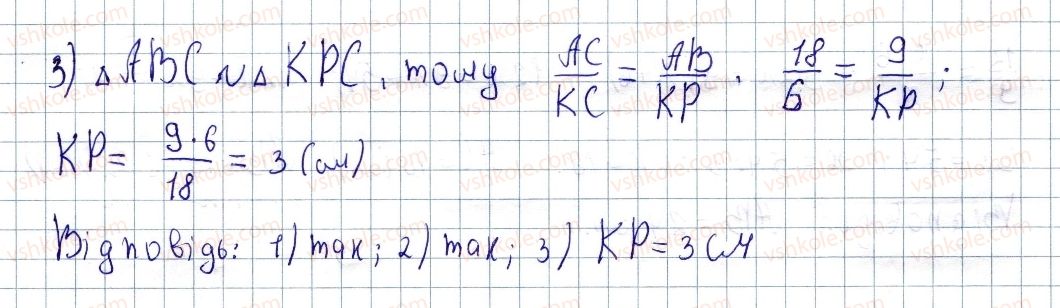 3) △ABC ∾ △KPC, тому AC/KC = AB/KP. 18/6 = 9/KP;
KP = 9·6/18 = 3 (см)
Відповідь: 1) так; 2) так; 3) KP = 3 см